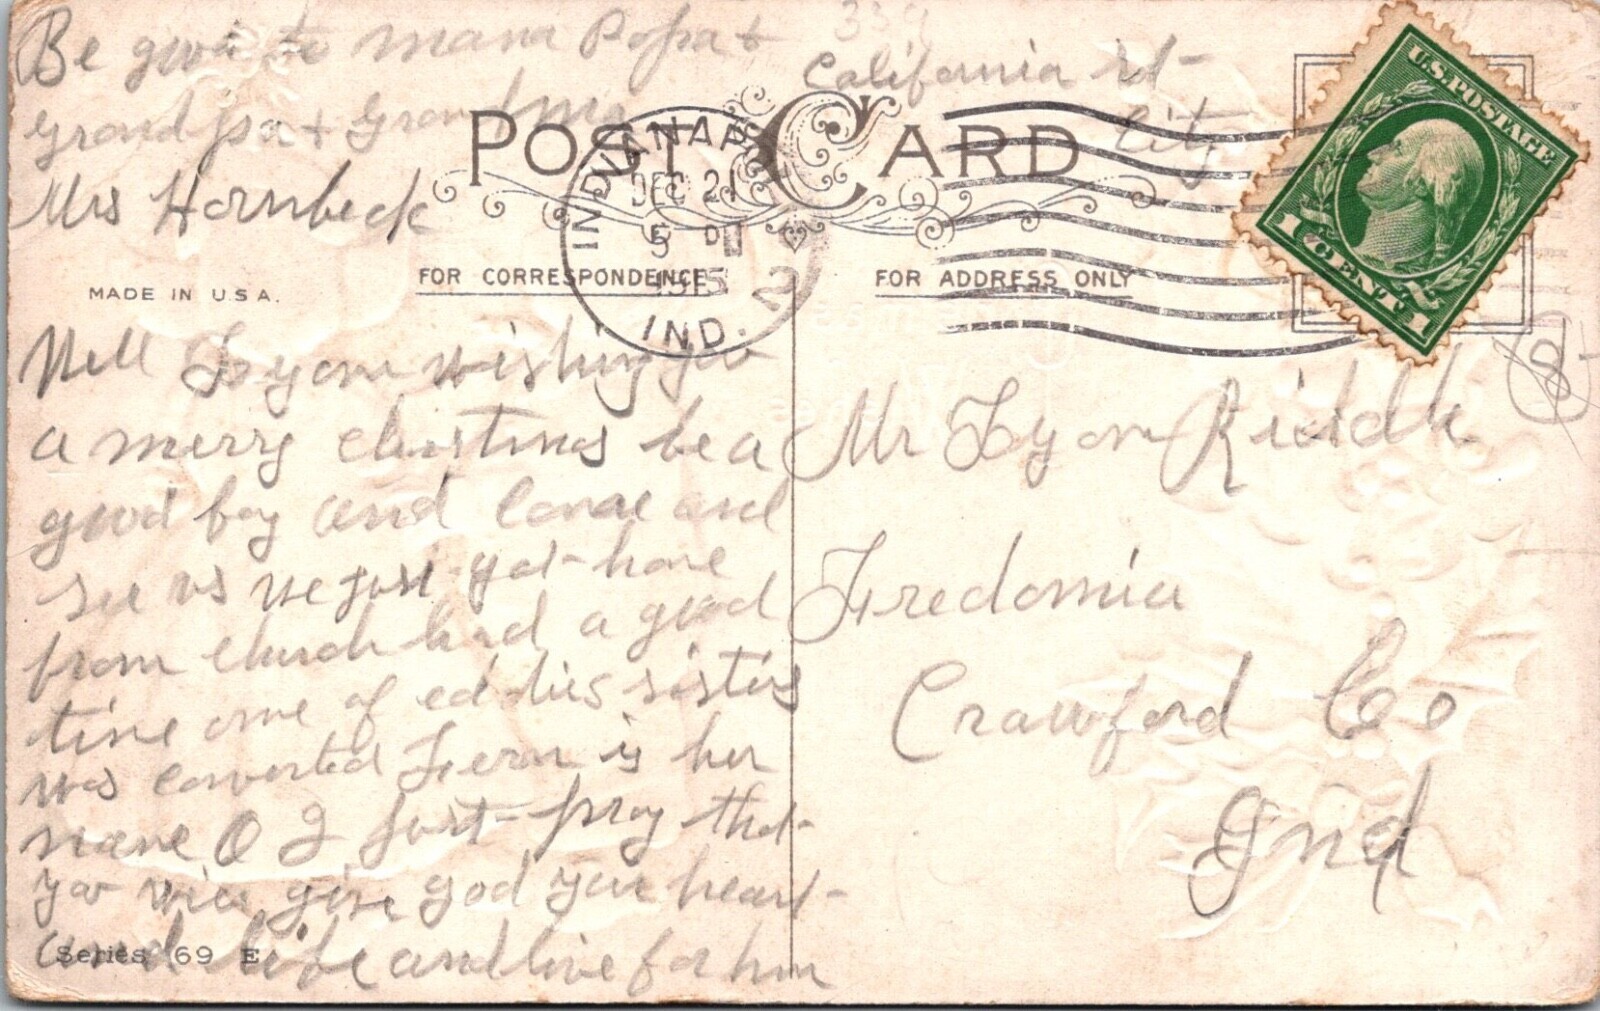 Be good to mama Popa +
grand pa + grandma
Mrs Hornbeck
339
California st
City
POST CARD
INDIANAP
DEC 21
5 P
1915
IND. 2
U.S. POSTAGE
1 CENT 1
MADE IN U.S.A.
FOR CORRESPONDENCE
FOR ADDRESS ONLY
Well Lyom wishing you
a merry christmas be a
good boy and come and
see us we just got home
from church had a good
time one of eddies sisters
was converted Fern is her
name O I just pray that
you will give god your heart
and life and live for him
Series 69 E
Mr Lyom Riddle
Fredonia
Crawford Co
Ind